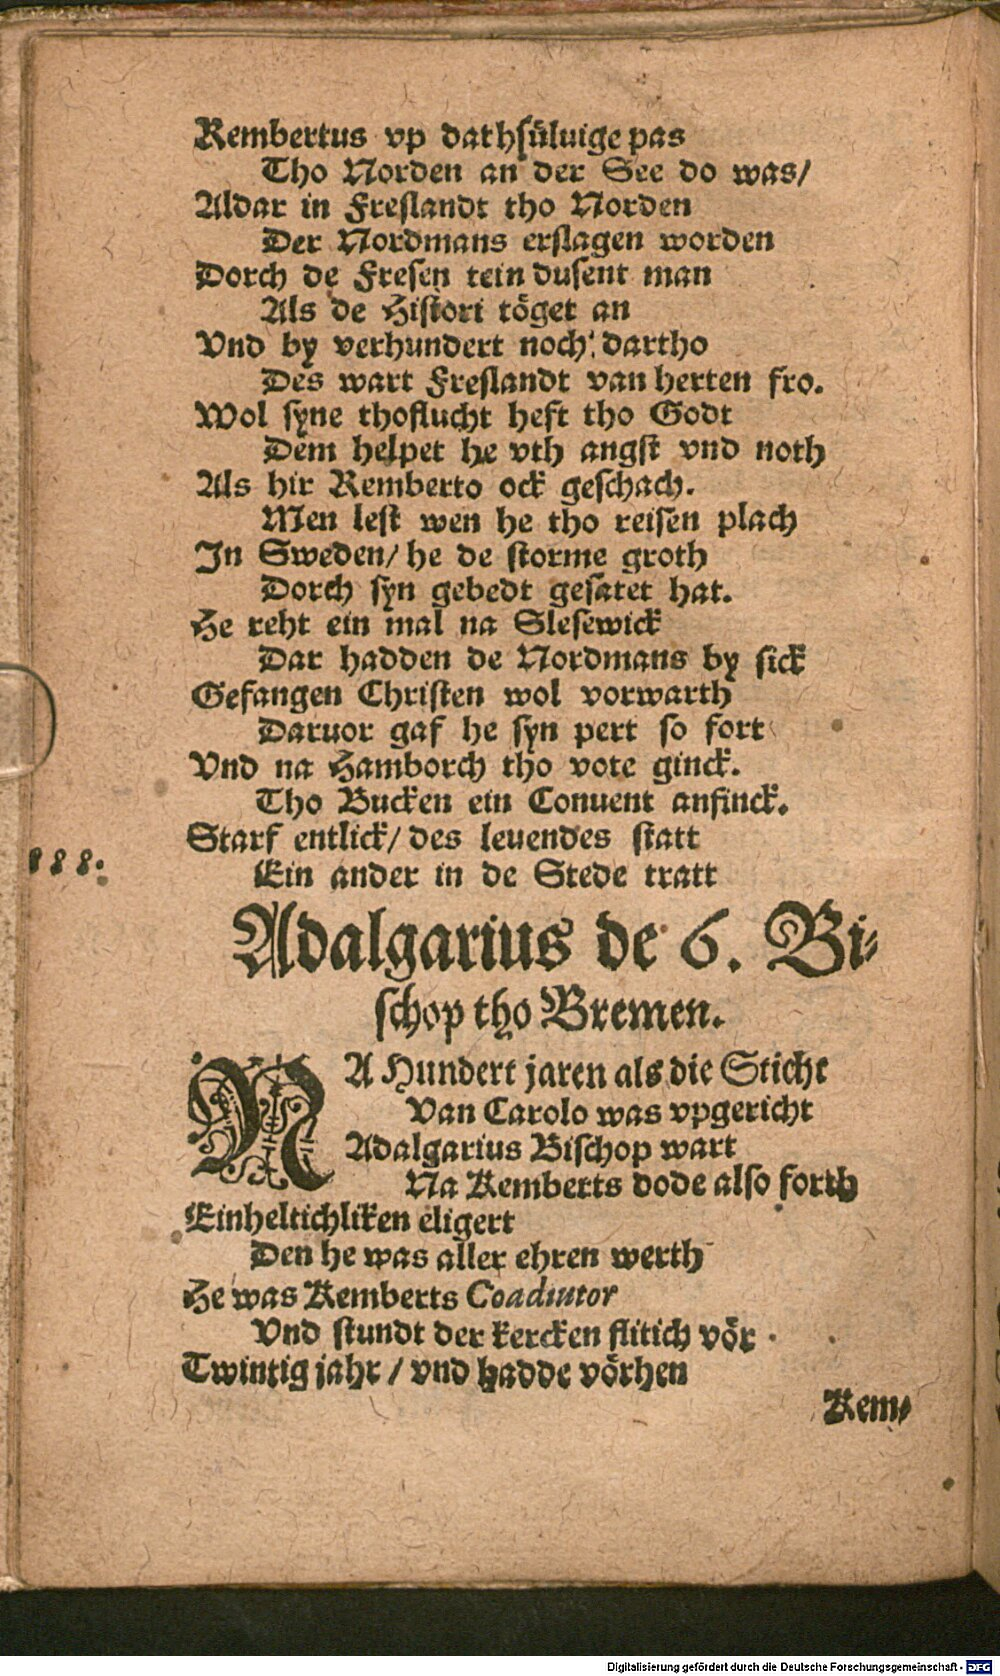 Rembertus vp dathsüluige pas
Tho Norden an der See do was/
Aldar in Freslandt tho Norden
Der Nordmans erslagen worden
Dorch de Fresen tein dusent man
Als de Histori töget an
Vnd by verhundert noch dartho
Des wart Freslandt van herten fro.
Wol syne thoflucht heft tho Godt
Dem helpet he vth angst vnd noth
Als hir Remberto ock geschach.
Men lest wen he tho reisen plach
In Sweden/ he de storme groth
Dorch syn gebedt gesatet hat.
He reht ein mal na Slesewick
Dar hadden de Nordmans by sick
Gefangen Christen wol vorwarth
Daruor gaf he syn pert so fort
Vnd na Hamborch tho vote ginck.
Tho Bucken ein Conuent anfinck.
Starf entlick/ des leuendes statt
888.
Ein ander in de Stede tratt
Adalgarius de 6. Bi-
schop tho Bremen.
NA Hundert jaren als die Sticht
Van Carolo was vpgericht
Adalgarius Bischop wart
Na Remberts dode also forth
Einheltichliken eligert
Den he was aller ehren werth
He was Remberts Coadiutor
Vnd stundt der kercken flitich vör
Twintig jahr / vnd hadde vörhen
Rem-
Digitalisierung gefördert durch die Deutsche Forschungsgemeinschaft - DFG